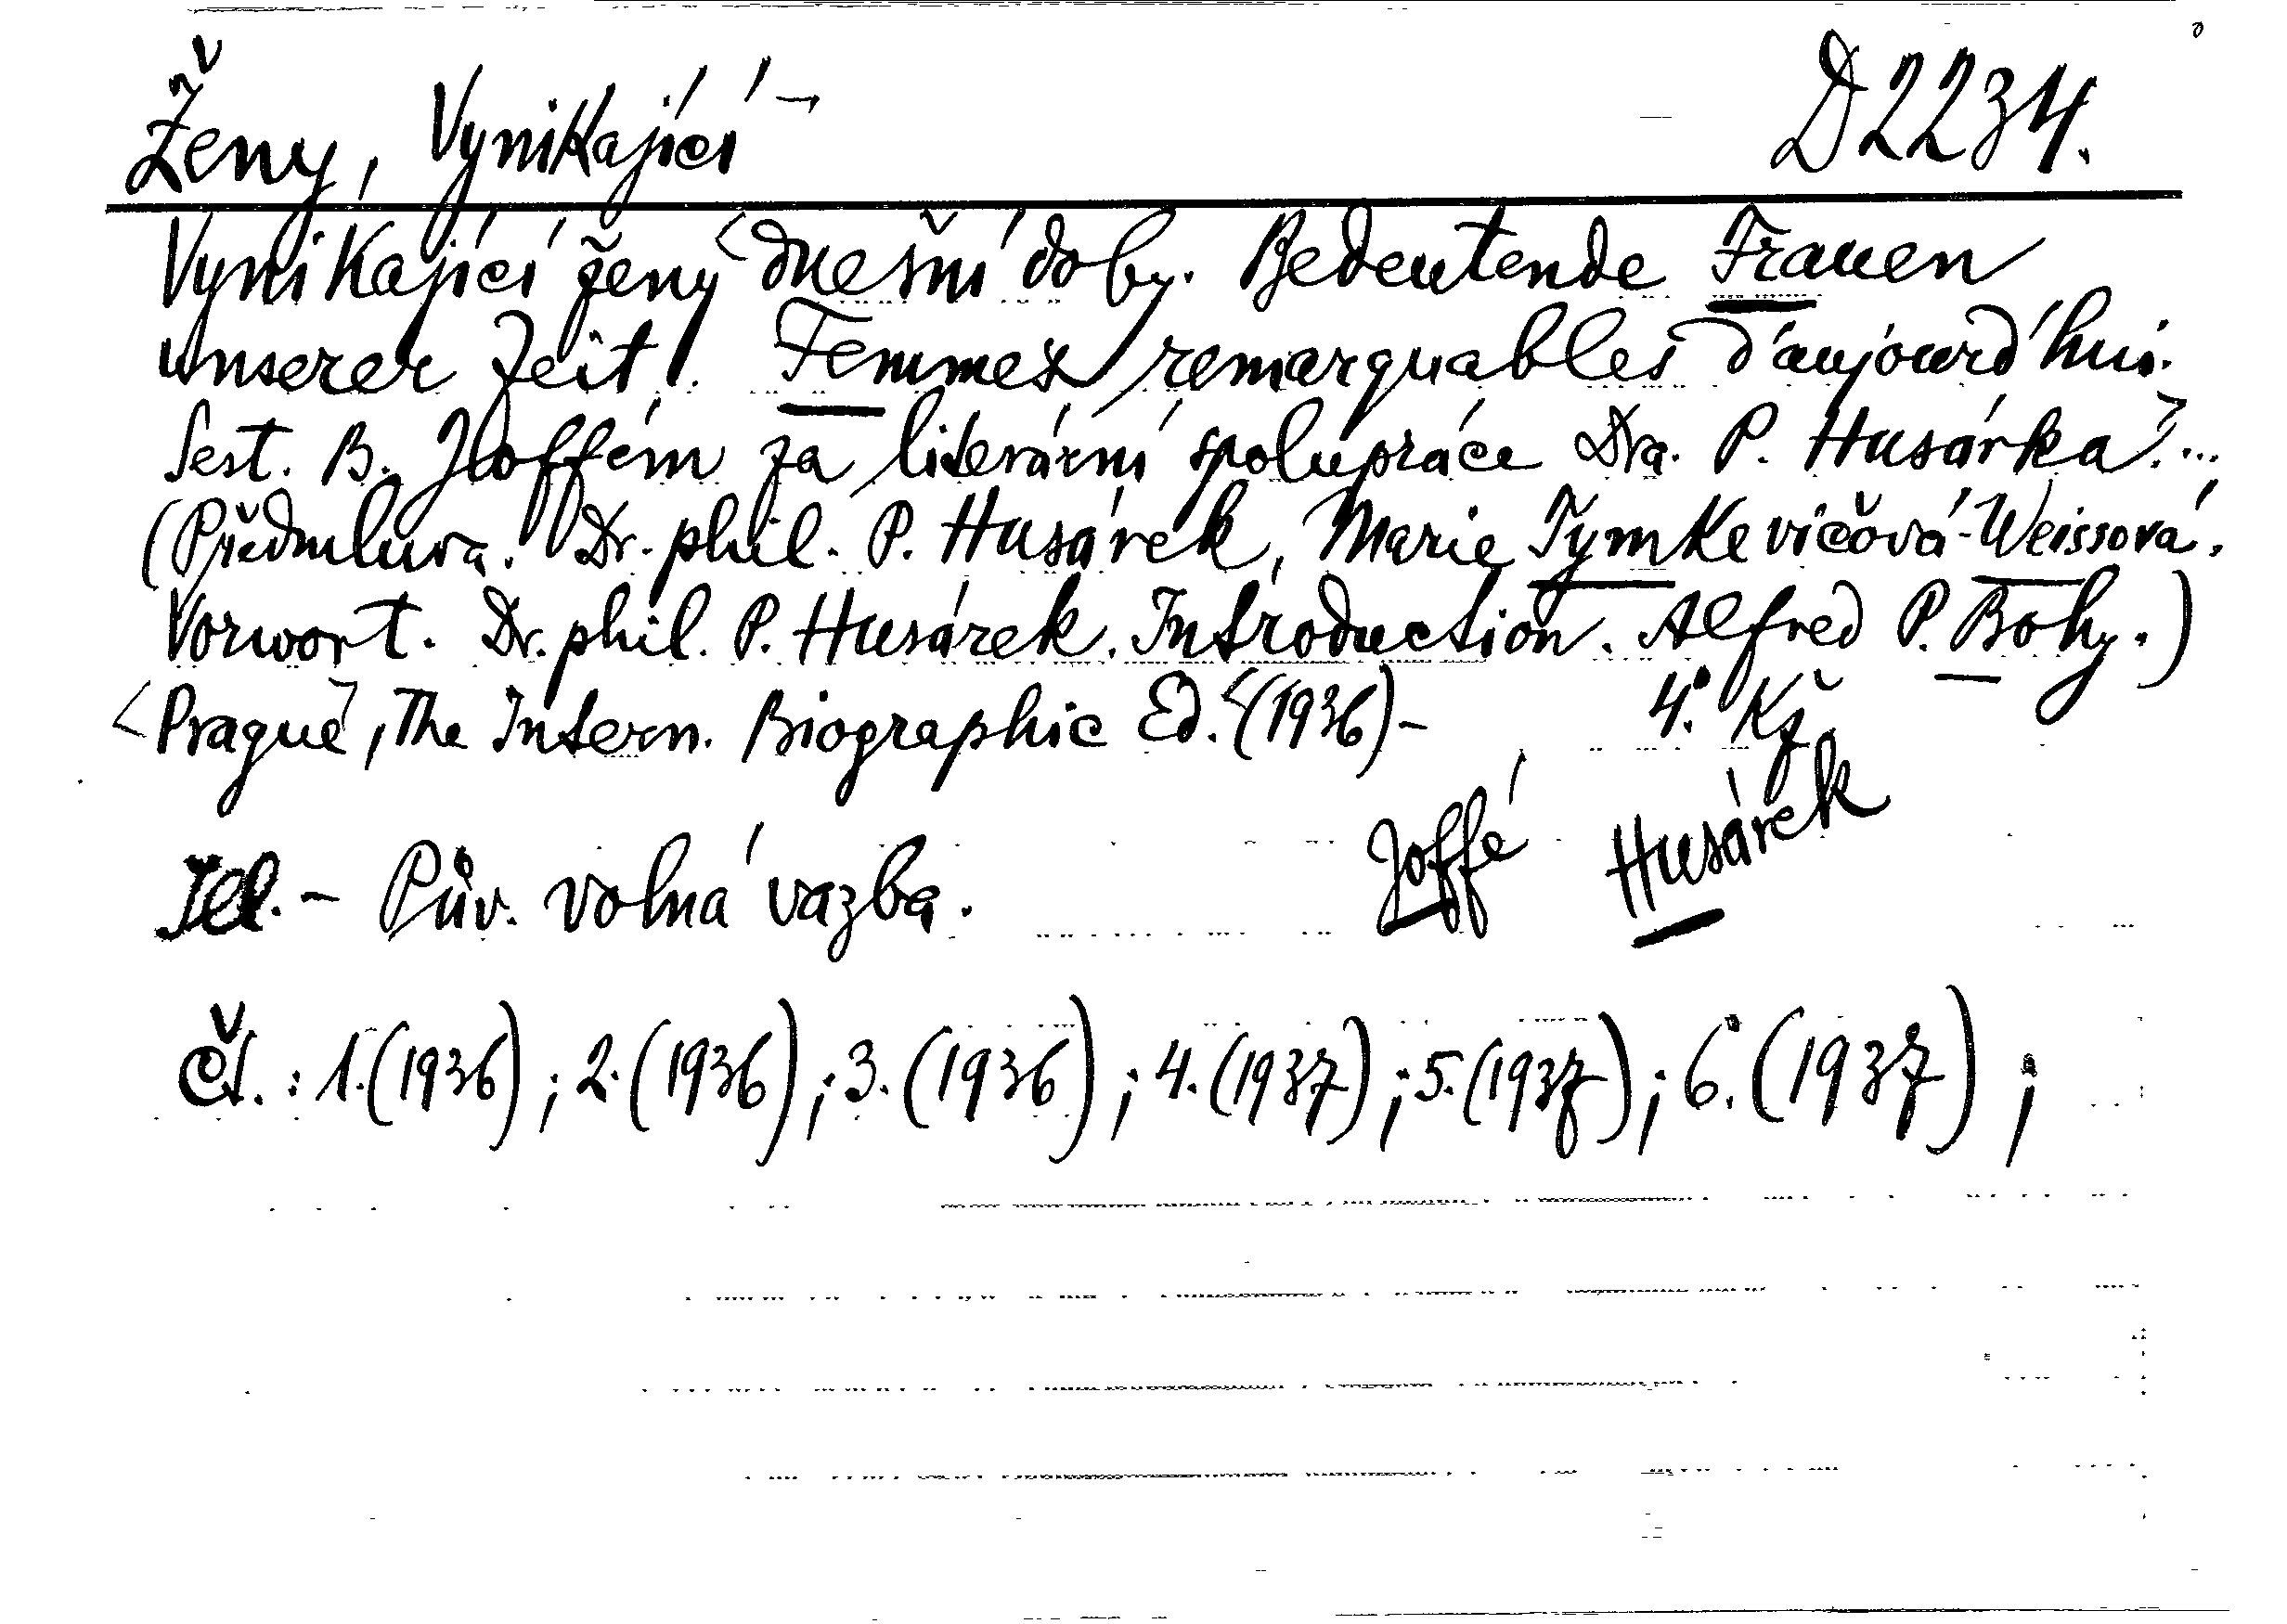 Ženy, Vynikající – D 2234.
Vynikající ženy <dnešní doby. Bedeutende Frauen
unserer Zeit. Femmes remarquables d'aujourd'hui.
Sest. B. Joffém za literární spolupráce Dra. P. Husárka>. ...
(Předmluva. Dr. phil. P. Husárek, Marie Tymkevičová-Weissová.
Vorwort. Dr. phil. P. Husárek. Introduction. Alfred P. Bohy.)
<Prague>, The Intern. Biographic Ed. <(1936) – 4.° Kž
Joffé Husárek
Il. – Pův. volná vazba.
Čt.: 1.(1936); 2.(1936); 3.(1936); 4.(1937); 5.(1937); 6.(1937);